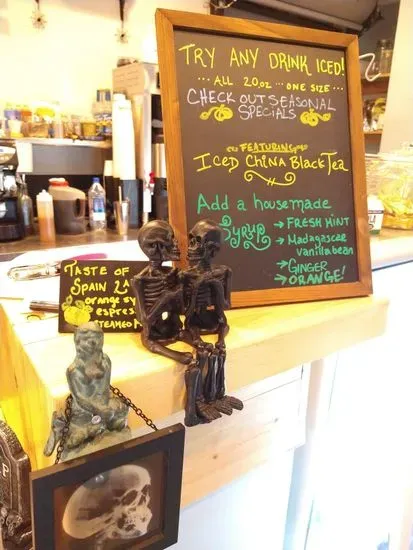 TRY ANY DRINK ICED!
... ALL 20oz ... ONE SIZE ...
CHECK OUT SEASONAL
SPECIALS
FEATURING
ICED CHINA BLACK TEA
Add a housemade
SYRUP
→ FRESH MINT
→ Madagascar
vanilla bean
→ GINGER
→ ORANGE!
TASTE OF
SPAIN
orange sy
espres
STEAMED
P